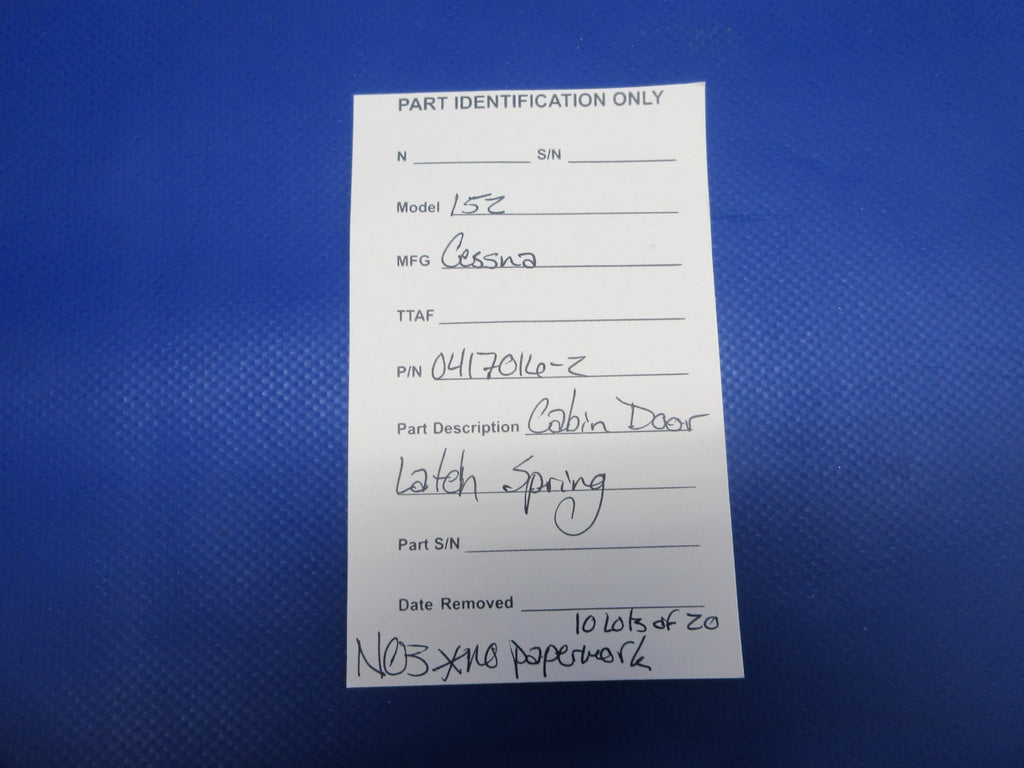 PART IDENTIFICATION ONLY
N S/N
Model 152
MFG Cessna
TTAF
P/N 0417016-2
Part Description Cabin Door
Latch Spring
Part S/N
Date Removed
10 Lots of 20
NOS *no paperwork